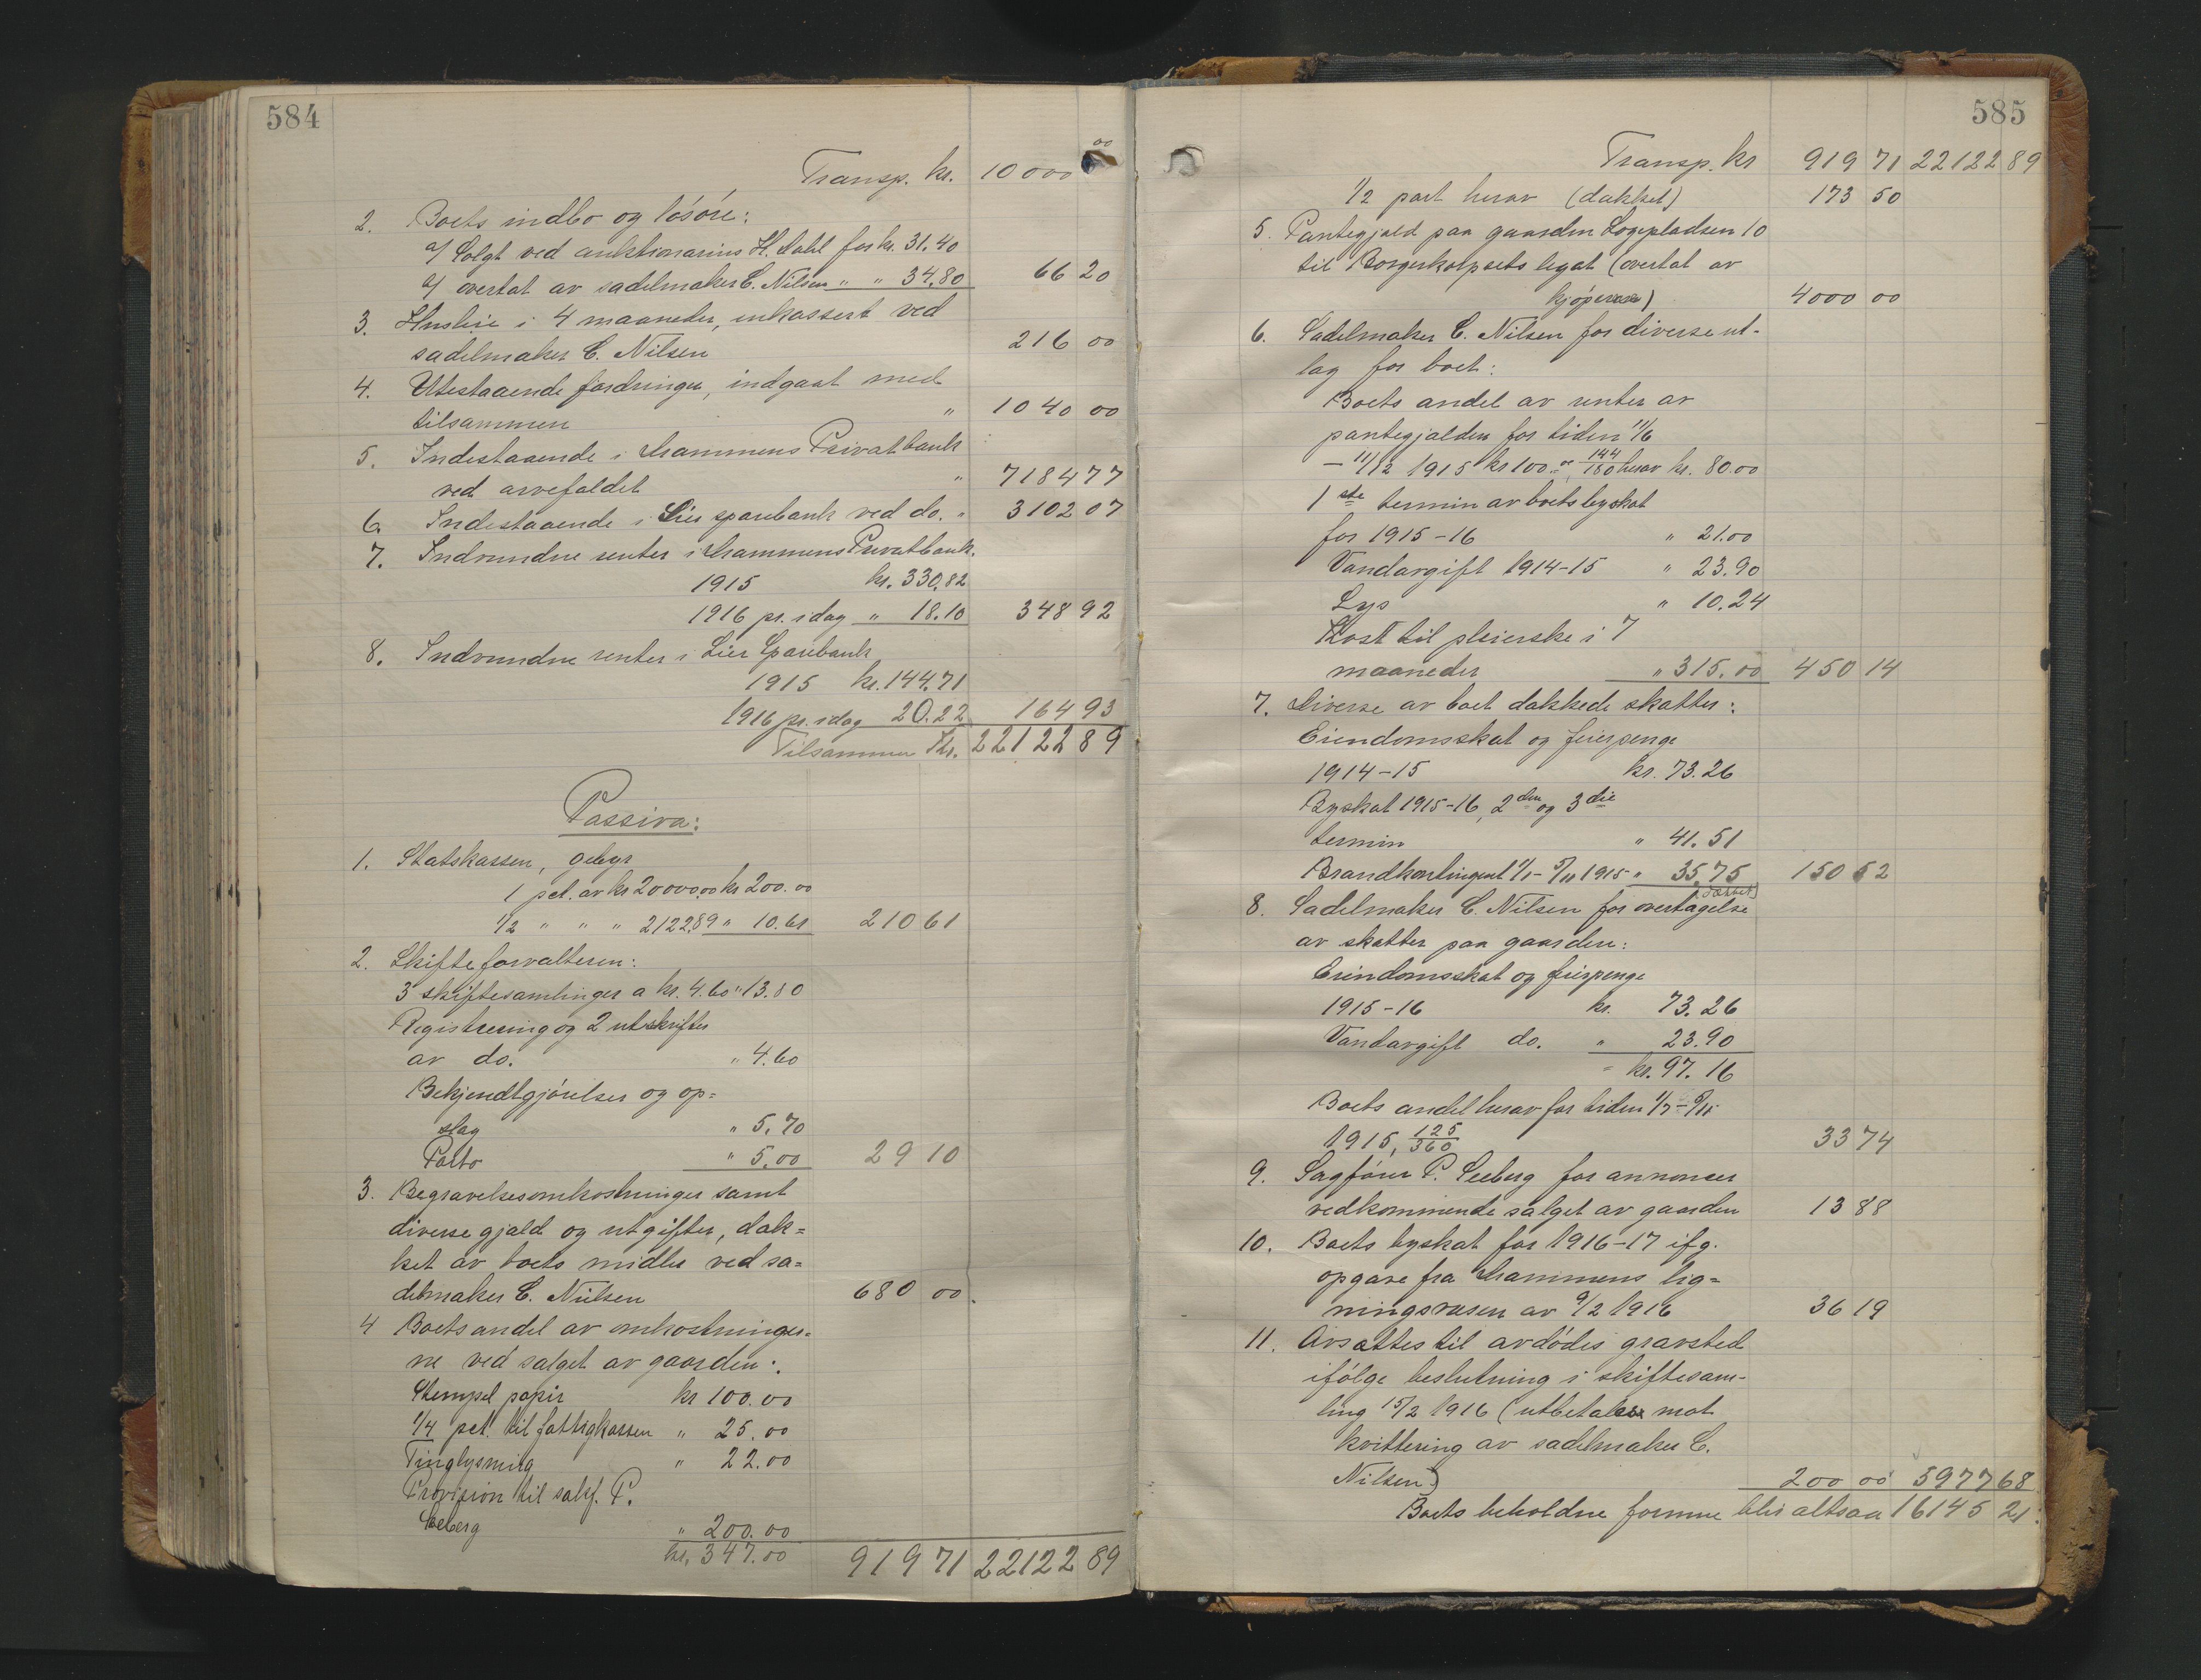 584
Transp. kr. 10000 00
2. Boets indbo og løsøre:
a/ Solgt ved auktionarius H. Dahl for kr. 31.40
a/ overtat av sadelmaker C. Nilsen " " 34.80 66 20
3. Husleie i 4 maaneder, inkassert ved
sadelmaker C. Nilsen 216 00
4. Utestaaende fordringer, indgaat med
tilsammen " 1040 00
5. Indestaaende i Drammens Privatbank
ved arvefaldet " 7184 77
6. Indestaaende i Lier sparebank ved do. " 3102 07
7. Indvundne renter i Drammens Privatbank.
1915 kr. 330,82
1916 pr. idag " 18.10 348 92
8. Indvundne renter i Lier Sparebank
1915 kr. 144.71
1916 pr. idag 20.22 164 93
Tilsammen Kr. 22122 89
Passiva:
1. Statskassen, gebyr
1 pct. av kr 20000.00 kr 200.00
1/2 " " " 2122.89 " 10.61 210 61
2. Skifteforvalteren:
3 skiftesamlinger a kr. 4.60 " 13.80
Registrering og 2 utskrifter
av do. " 4.60
Bekjendtgjørelser og op=
slag " 5.70
Porto " 5.00 29 10
3. Begravelsesomkostninger samt
diverse gjæld og utgifter, dæk=
ket av boets midler ved sa=
delmaker C. Nilsen 680 00.
4 Boets andel av omkostninger=
ne ved salget av gaarden:
Stempel papir kr 100.00
1/4 pct. til fattigkassen " 25.00
Tinglysning " 22.00
Provision til sakf. P.
Seeberg " 200.00
kr. 347.00 919 71 22122 89
585
Transp. kr 919 71 22122 89
1/2 part herav (dækket) 173 50
5. Pantegjæld paa gaarden Løgepladsen 10
til Borgerkorpsets legat (overtat av
kjøperen) 4000 00
6. Sadelmaker C. Nilsen for diverse ut-
lag for boet:
Boets andel av renter av
pantegjælden for tiden 11/6
- 11/12 1915 kr 100.00 144/180 herav kr. 80.00
1ste termin av boets byskat
for 1915-16 " 21.00
Vandavgift 1914-15 " 23.90
Lys " 10.24
Kost til pleierske i 7
maaneder " 315.00 450 14
7. Diverse av boet dækkede skatter:
Eiendomsskat og feierpenge
1914-15 kr. 73.26
Byskat 1915-16, 2den og 3die
termin " 41.51
Brandkontingent 1/1 - 5/11 1915 " 35.75 150 52
8. Sadelmaker C. Nilsen for overtagelse (dækket)
av skatter paa gaarden:
Eiendomsskat og feierpenge
1915-16 kr. 73.26
Vandavgift do. " 23.90
= kr. 97.16
Boets andel herav for tiden 1/7 - 5/11
1915, 125/360 33 74
9. Sagfører P. Seeberg for annoncer
vedkommende salget av gaarden 13 88
10. Boets byskat for 1916-17 ifg.
opgave fra Drammens lig=
ningsvæsen av 9/2 1916 36 19
11. Avsættes til avdødes gravsted
ifølge beslutning i skiftesam-
ling 15/2 1916 (utbetales mot
kvittering av sadelmaker C.
Nilsen) 200 00 5977 68
Boets beholdne formue blir altsaa 16145 21: